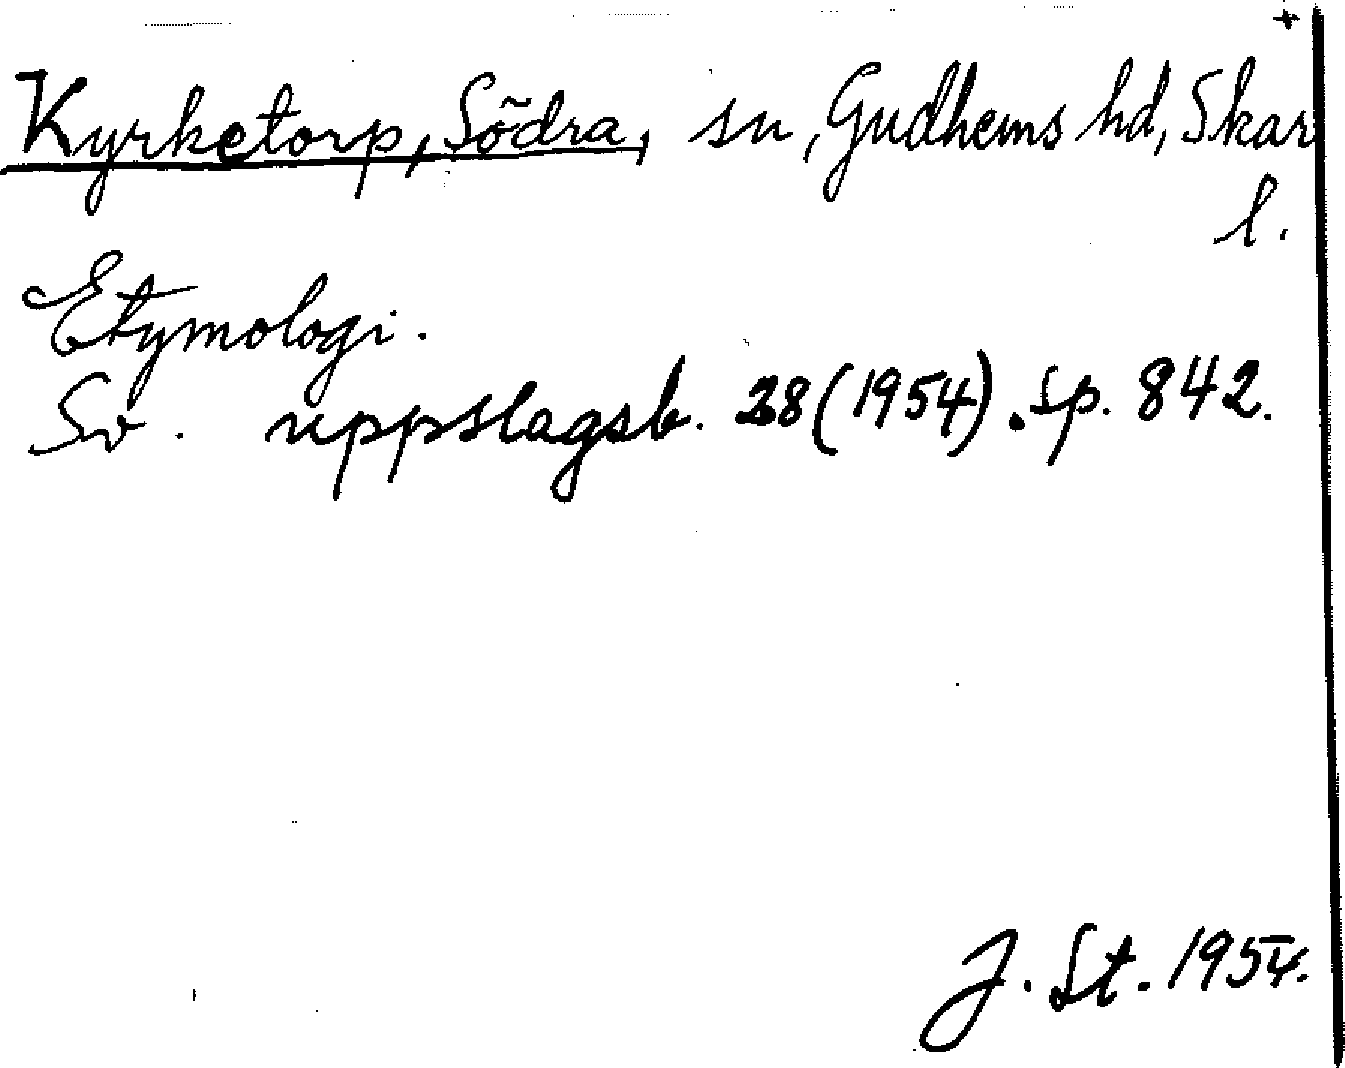 +
Kyrketorp, Södra, sn, Gudhems hd, Skar
l.
Etymologi.
Sv. uppslagsb. 28 (1954). Sp. 842.
J. St. 1954.